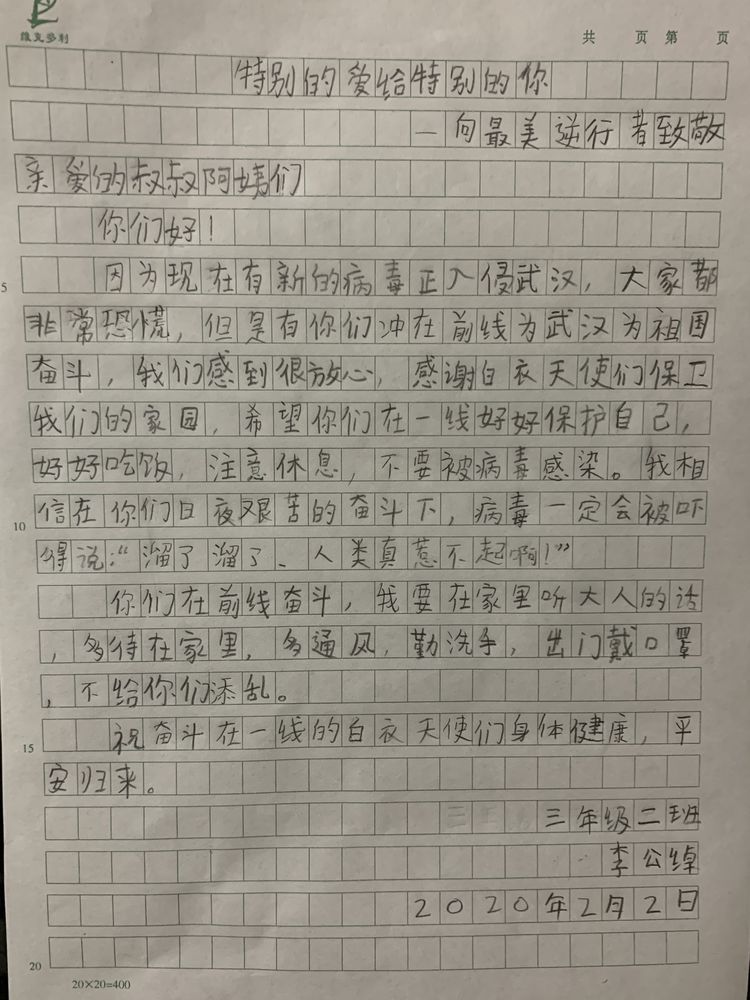 維克多利
共 页 第 页
特别的爱给特别的你
—向最美逆行者致敬
亲爱的叔叔阿姨们
你们好！
因为现在有新的病毒正入侵武汉，大家都
5
非常恐慌，但是有你们冲在前线为武汉为祖国
奋斗，我们感到很放心，感谢白衣天使们保卫
我们的家园，希望你们在一线好好保护自己，
好好吃饭，注意休息，不要被病毒感染。我相
信在你们日夜艰苦的奋斗下，病毒一定会被吓
10
得说：“溜了溜了、人类真惹不起啊！”
你们在前线奋斗，我要在家里听大人的话
，多待在家里，多通风，勤洗手，出门戴口罩
，不给你们添乱。
祝奋斗在一线的白衣天使们身体健康，平
15
安归来。
三年级二班
李公绰
2020年2月2日
20
20×20=400